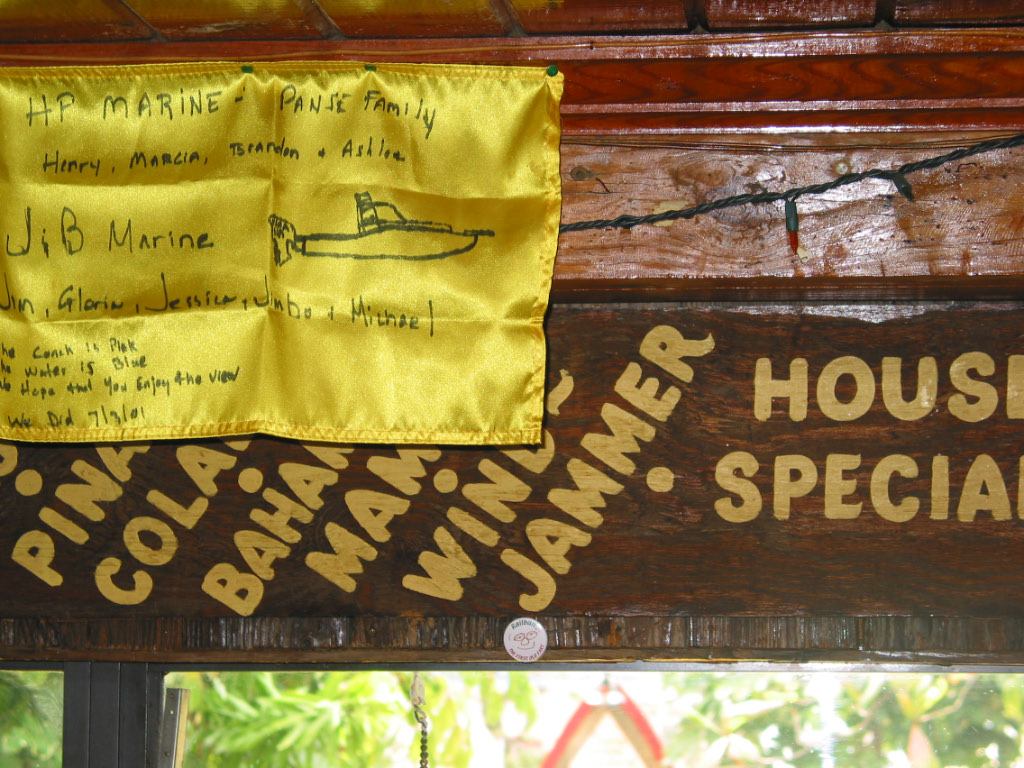 HP MARINE - PANSE Family
Henry, MARCIA, Brandon + Ashlee
J & B Marine
Jim, Gloria, Jessica, Jimbo & Michael
The Conch is Pink
The Water is Blue
We Hope that You Enjoy the view
We Did 7/3/01
PINA
COLADA
BAHAMA
MAMA
WIND
JAMMER
HOUSE
SPECIAL